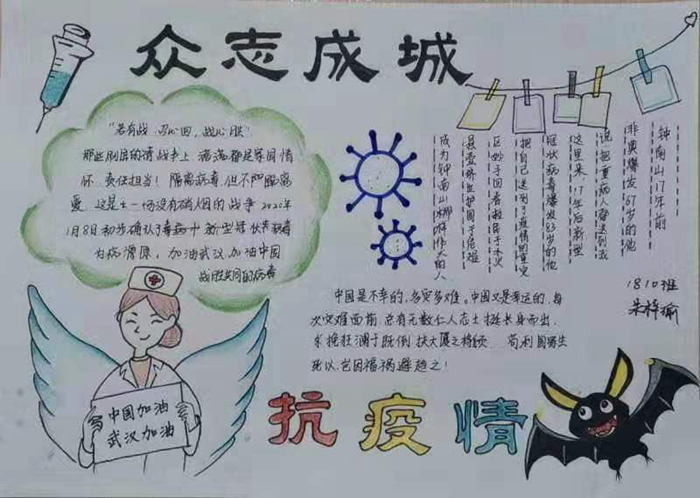 众志成城
"若有战 召必回,战必胜"
那些刚劲的请战书上 满满都是家国情
怀 责任担当! 隔离病毒,但不隔离
爱 这是一场没有硝烟的战争 2020年
1月8日初步确认了 新型冠状病毒
为病 原,加油武汉 加油中国
战胜共同的病毒
钟南山17年前
非典爆发67岁的他
说把重病人都送到我
这里来,17年后新型
冠状病毒爆发83岁的他
把自己送到了疫情的重灾
区妙手回春救民于水火
悬壶济生护国于危难
成为钟南山那样伟大的人
1810班
朱梓瑜
中国是不幸的,多灾多难,中国又是幸运的,每
次灾难面前 总有无数仁人志士挺身而出,
挽狂澜于既倒 扶大厦之将倾 苟利国家生
死以,岂因福祸避趋之!
中国加油
武汉加油
抗疫情